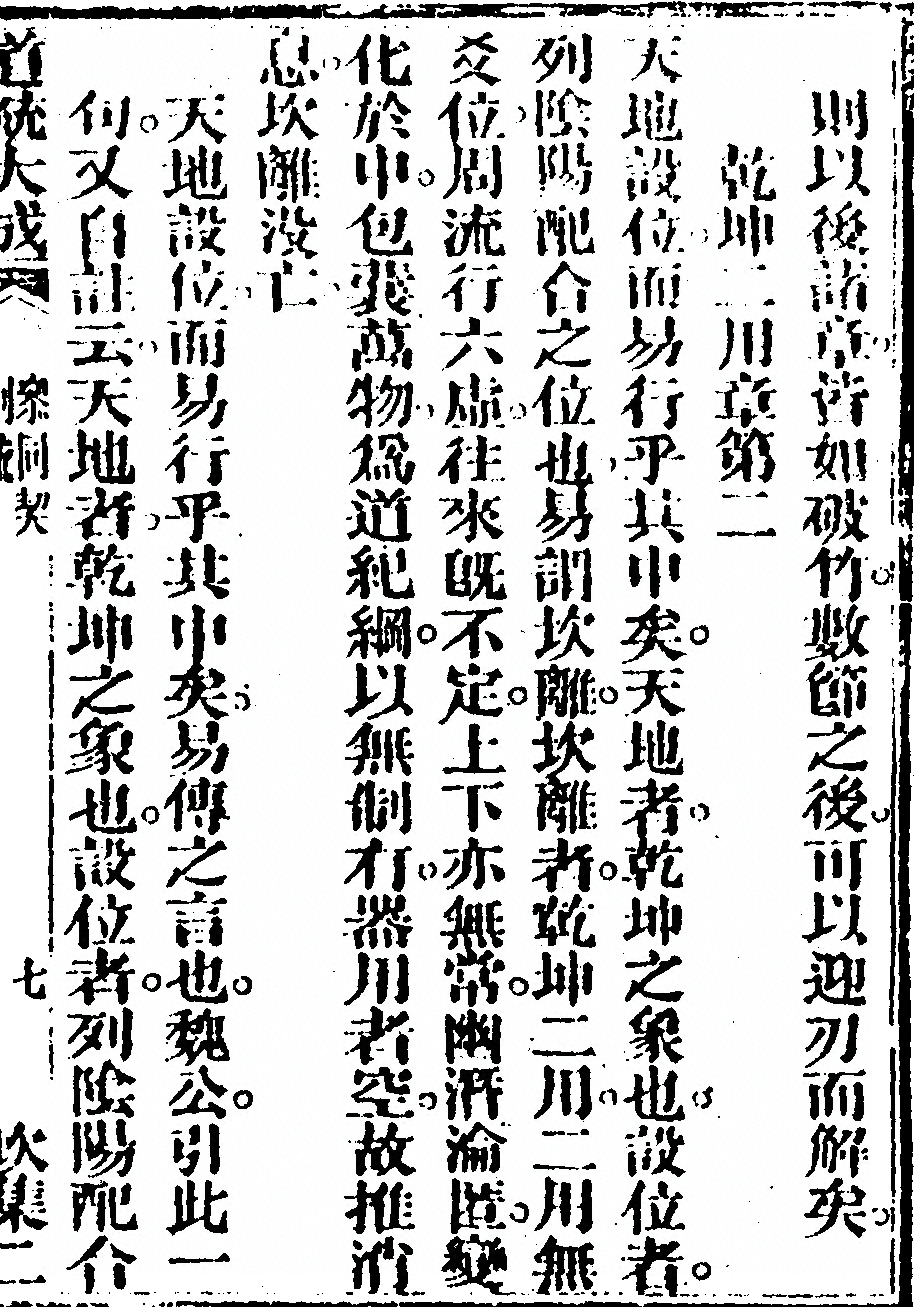 則以後諸章皆如破竹數節之後可以迎刃而解矣
乾坤二用章第二
天地設位而易行乎其中矣天地者乾坤之象也設位者
列陰陽配合之位也易謂坎離坎離者乾坤二用二用無
爻位周流行六虛往來旣不定上下亦無常幽潛淪匿變
化於中包褁萬物爲道紀綱以無制有器用者空故推消
息坎離沒亡
天地設位而易行乎其中矣易傳之言也魏公引此一
句又自註云天地者乾坤之象也設位者列陰陽配合
道統大成 叅同契 七 坎集二